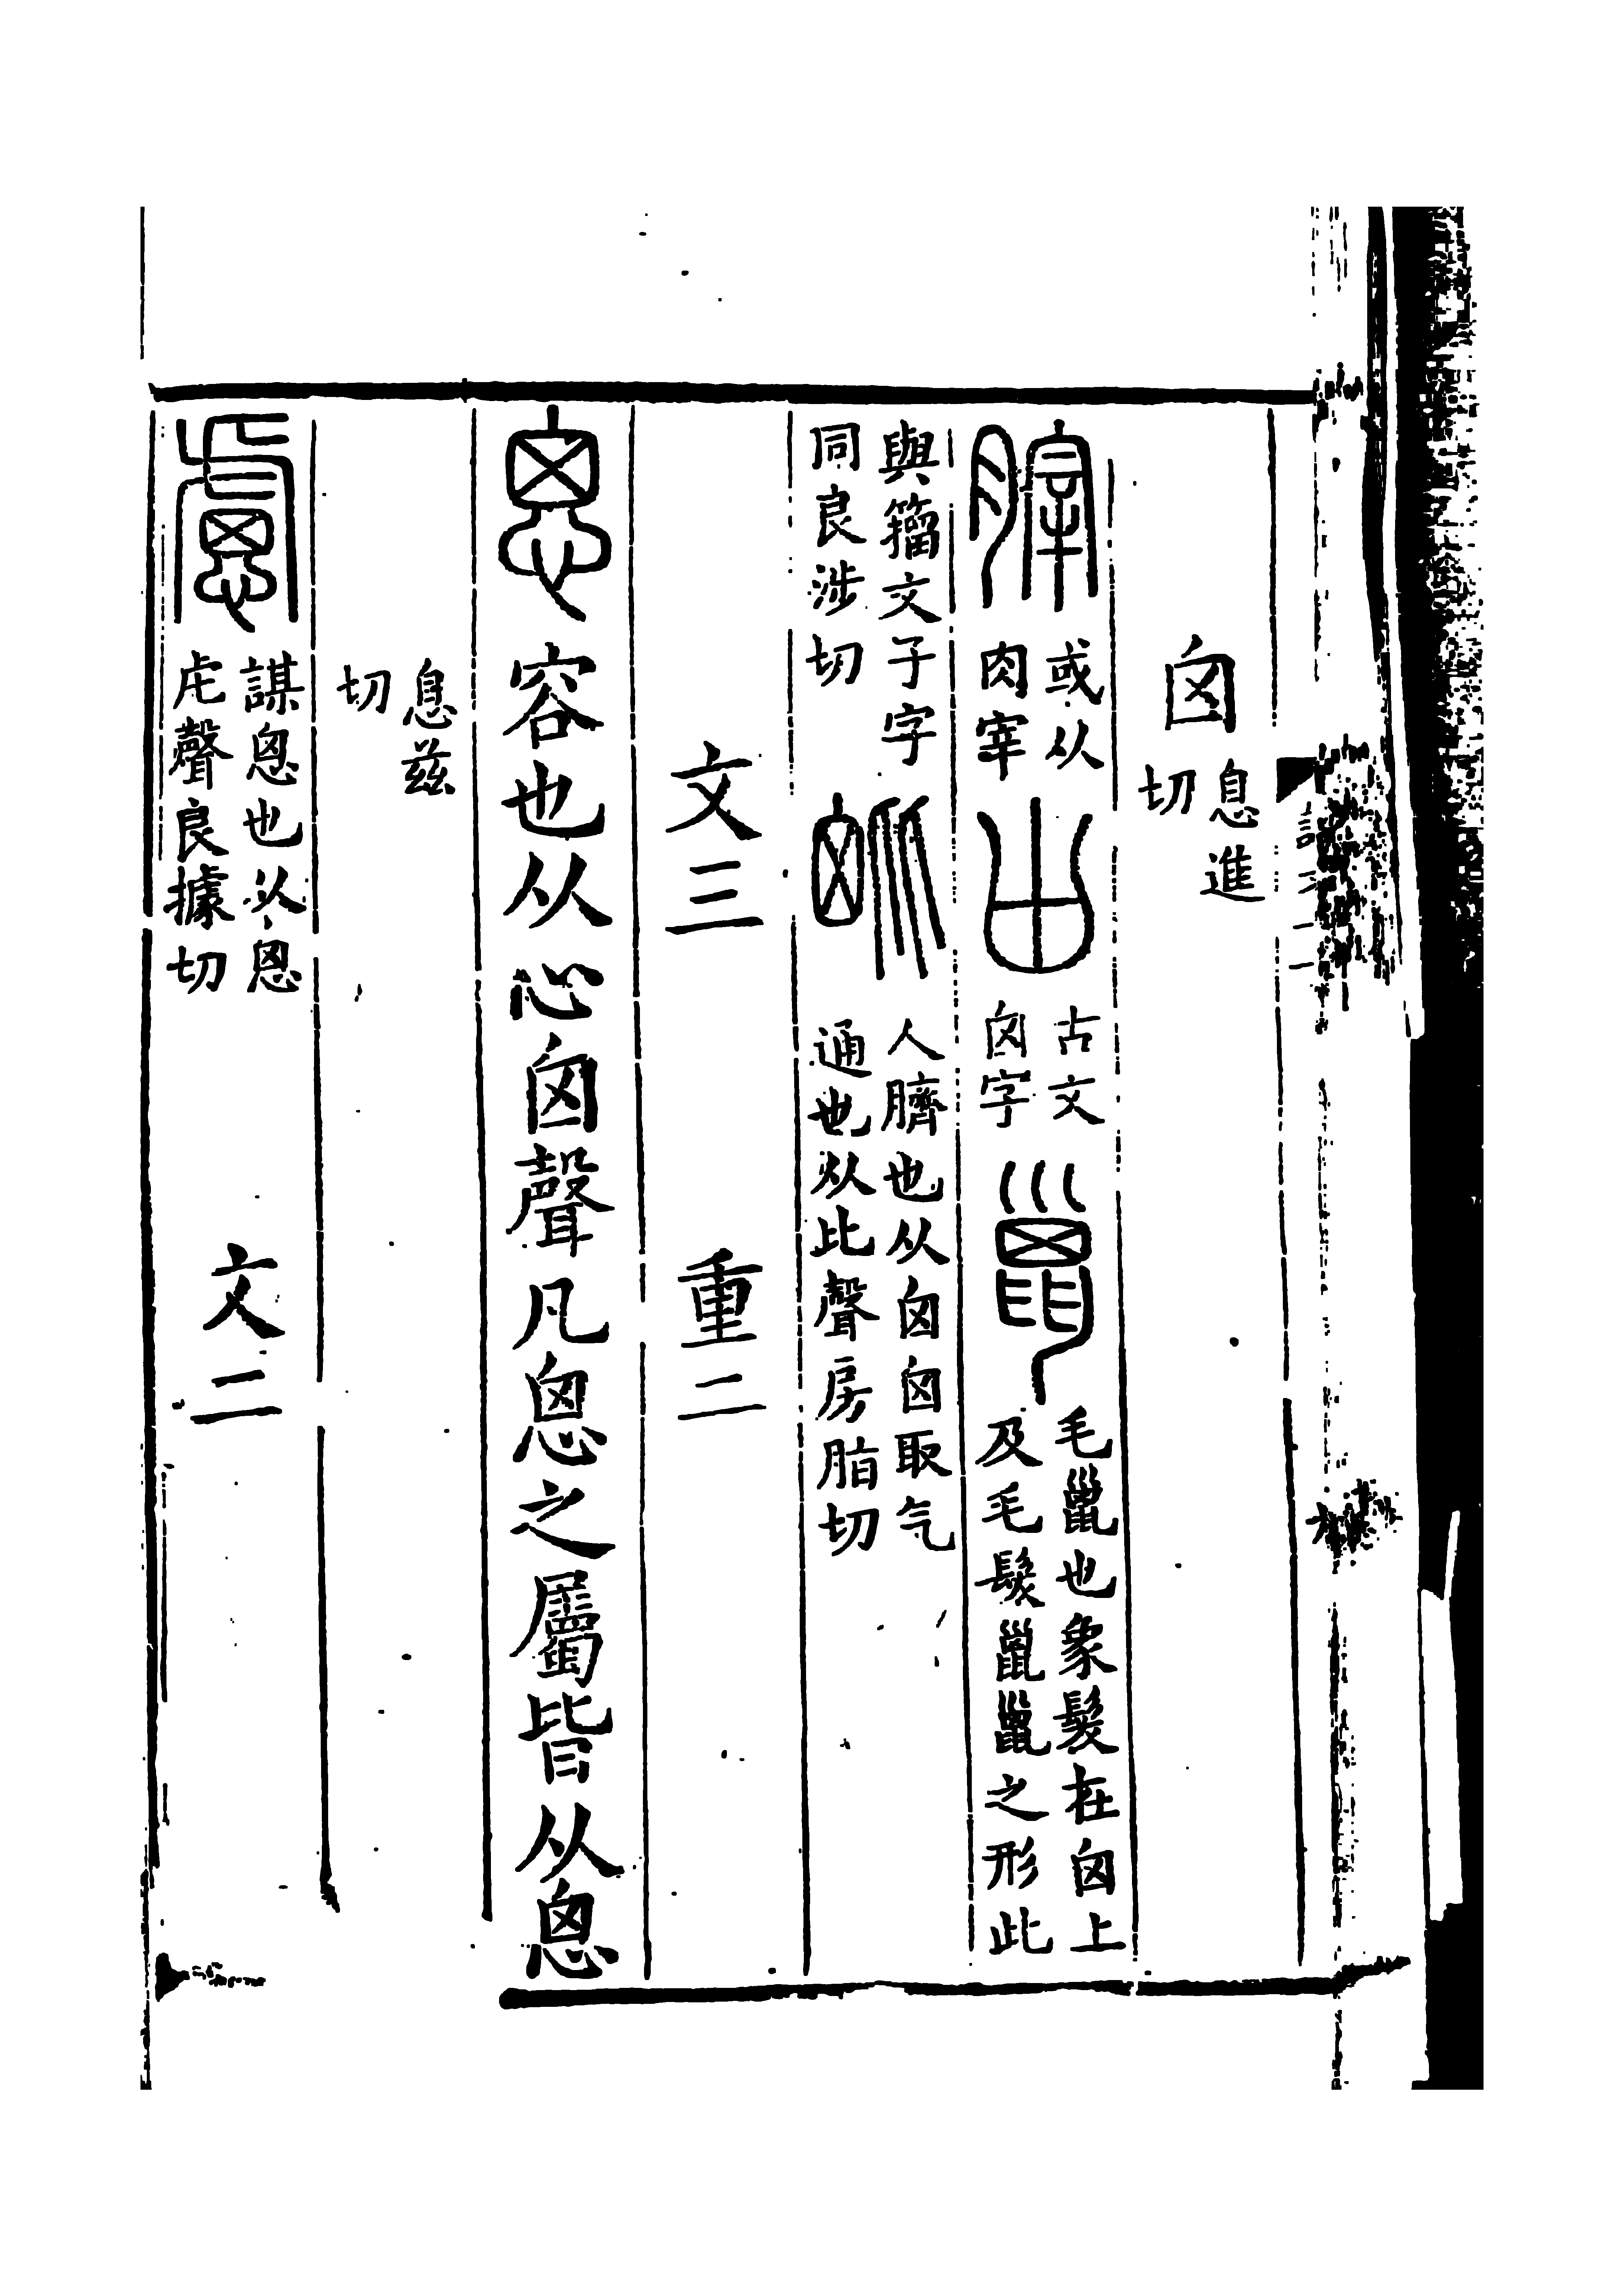 囟息進切
𦞤或从肉宰𠙷古文囟字巤毛巤也象髮在囟上及毛髮巤巤之形此
與籀文子字同良涉切𣬉人臍也从囟囟取气通也从比聲房脂切
文三 重二
恖容也从心囟聲凡恖之屬皆从恖
息茲切
慮謀恖也从恖虍聲良據切 文二